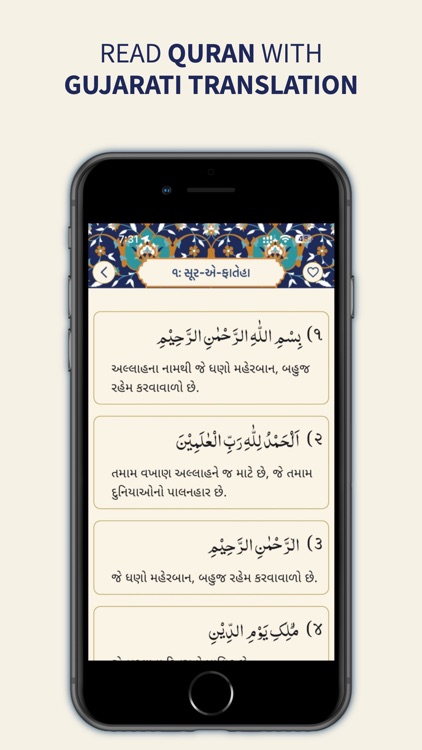 READ QURAN WITH
GUJARATI TRANSLATION
7:31
૧: સૂર-એ-ફાતેહા
૧) بِسْمِ اللّٰهِ الرَّحْمٰنِ الرَّحِيْمِ
અલ્લાહના નામથી જે ઘણો મહેરબાન, બહુજ
રહેમ કરવાવાળો છે.
૨) اَلْحَمْدُ لِلّٰهِ رَبِّ الْعٰلَمِيْنَ
તમામ વખાણ અલ્લાહને જ માટે છે, જે તમામ
દુનિયાઓનો પાલનહાર છે.
૩) الرَّحْمٰنِ الرَّحِيْمِ
જે ઘણો મહેરબાન, બહુજ રહેમ કરવાવાળો છે.
૪) مٰلِكِ يَوْمِ الدِّيْنِ